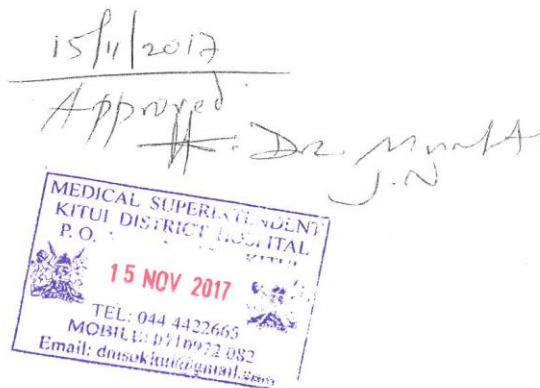 15/11/2017
Approved
Dr.
J.N
MEDICAL SUPERINTENDENT
KITUI DISTRICT HOSPITAL
P. O. KITUI
15 NOV 2017
TEL: 044 4422665
MOBILE: 0710972 082
Email: dmsokitui@gmail.com